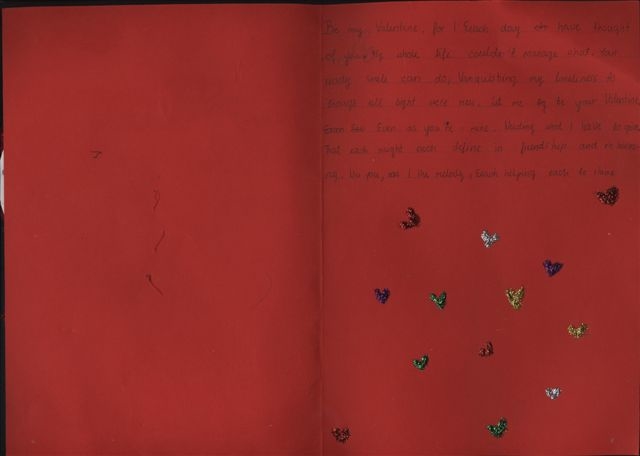 Be my Valentine, for I each day have thought
of you. My whole life couldn't manage what your
smile can do, Vanquishing my loneliness as
though all light were new. Let me try to be your Valentine
Even as you're mine. and I have to give,
That each might each define in friendship and in
You you, as I the melody, Each helping each to shine